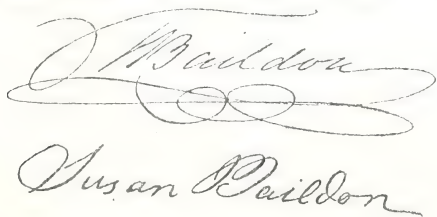 Baildon
Susan Baildon